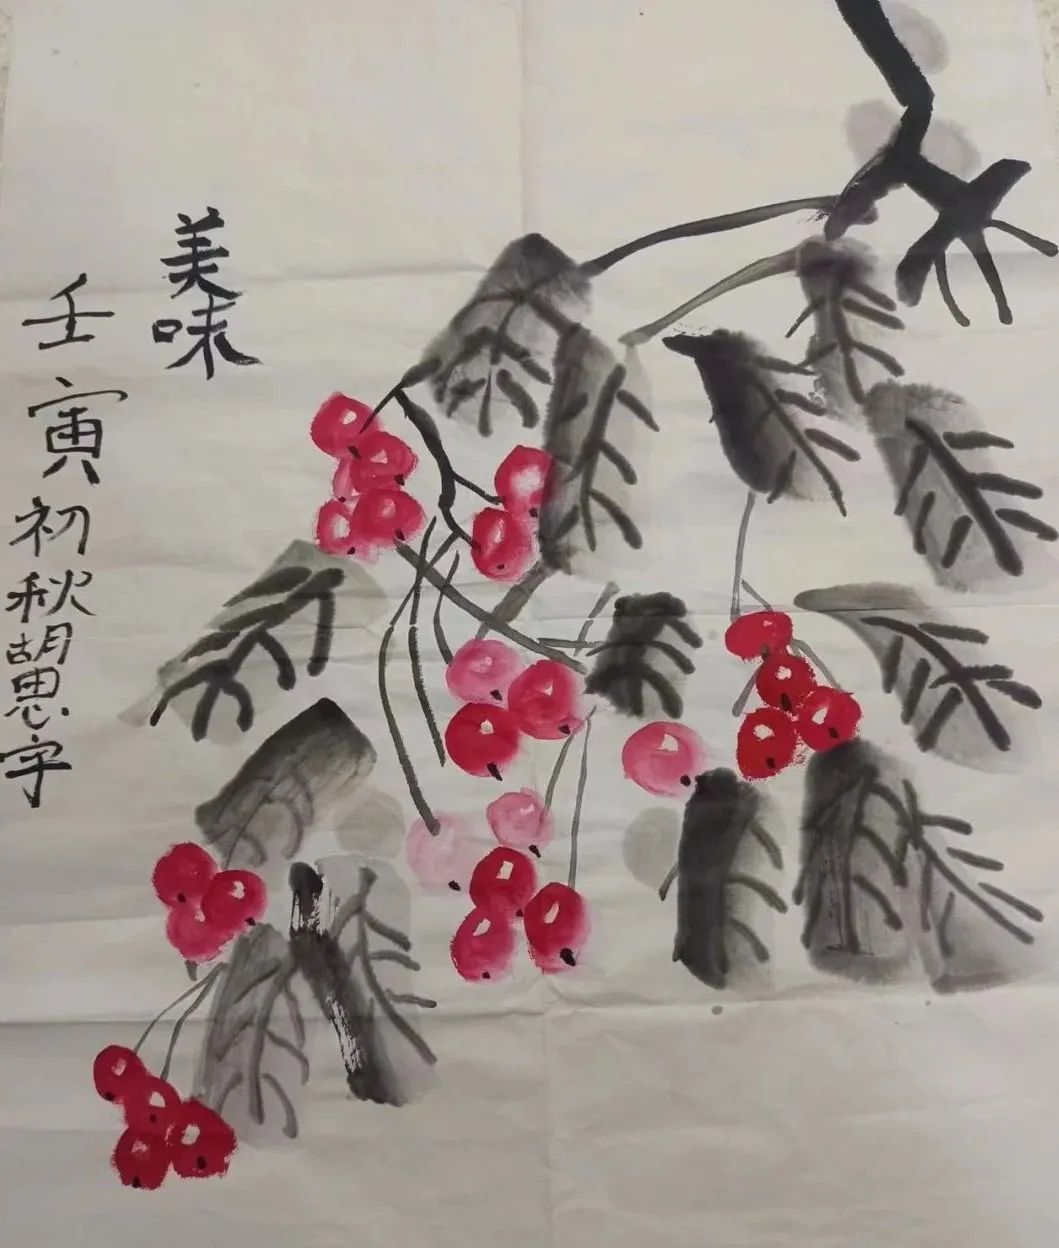 美味
壬寅初秋胡思宇